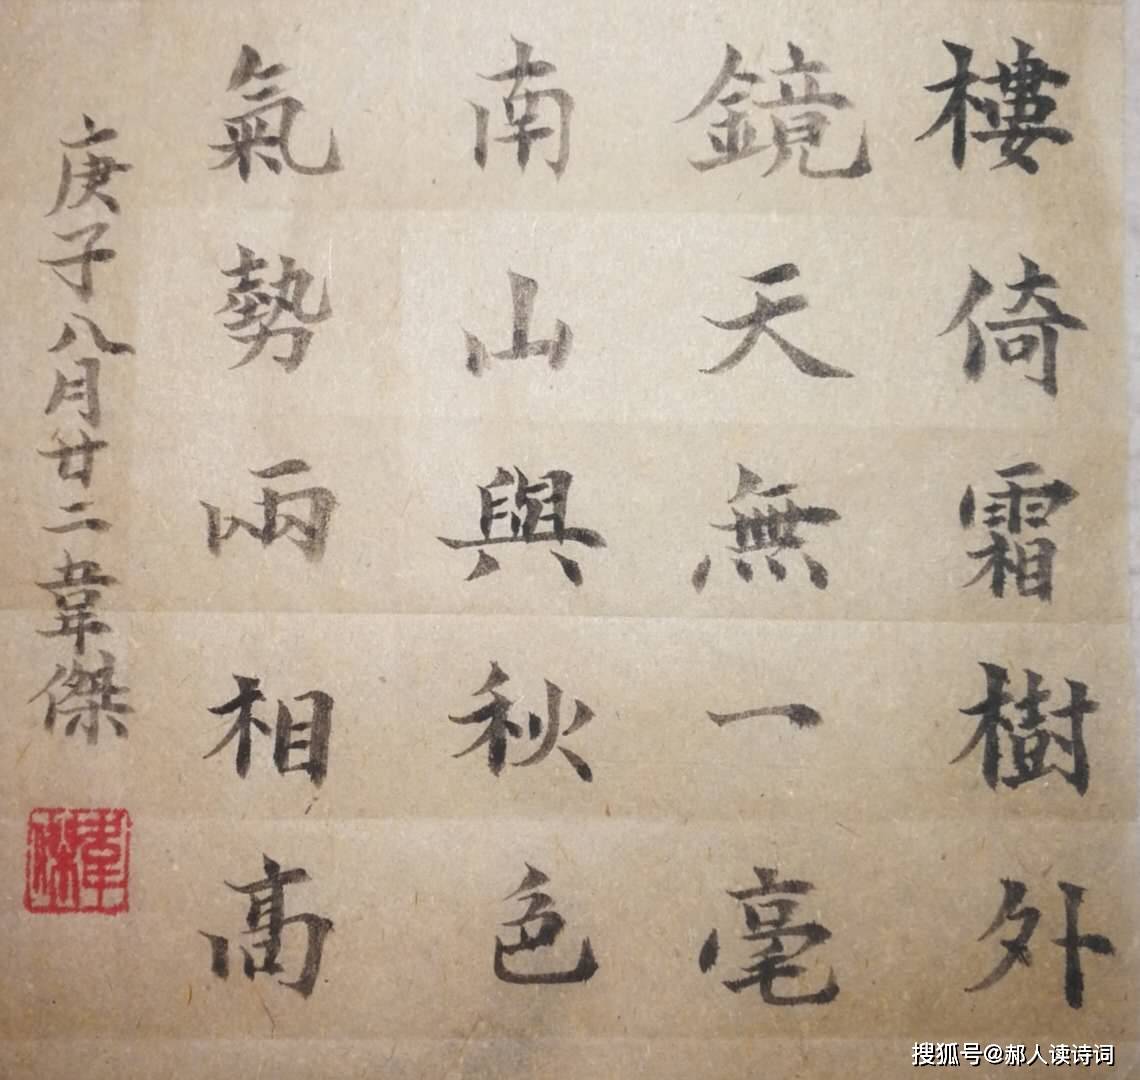 樓倚霜樹外
鏡天無一毫
南山與秋色
氣勢兩相高
庚子八月廿二韋傑
韋傑
搜狐号@郝人读诗词